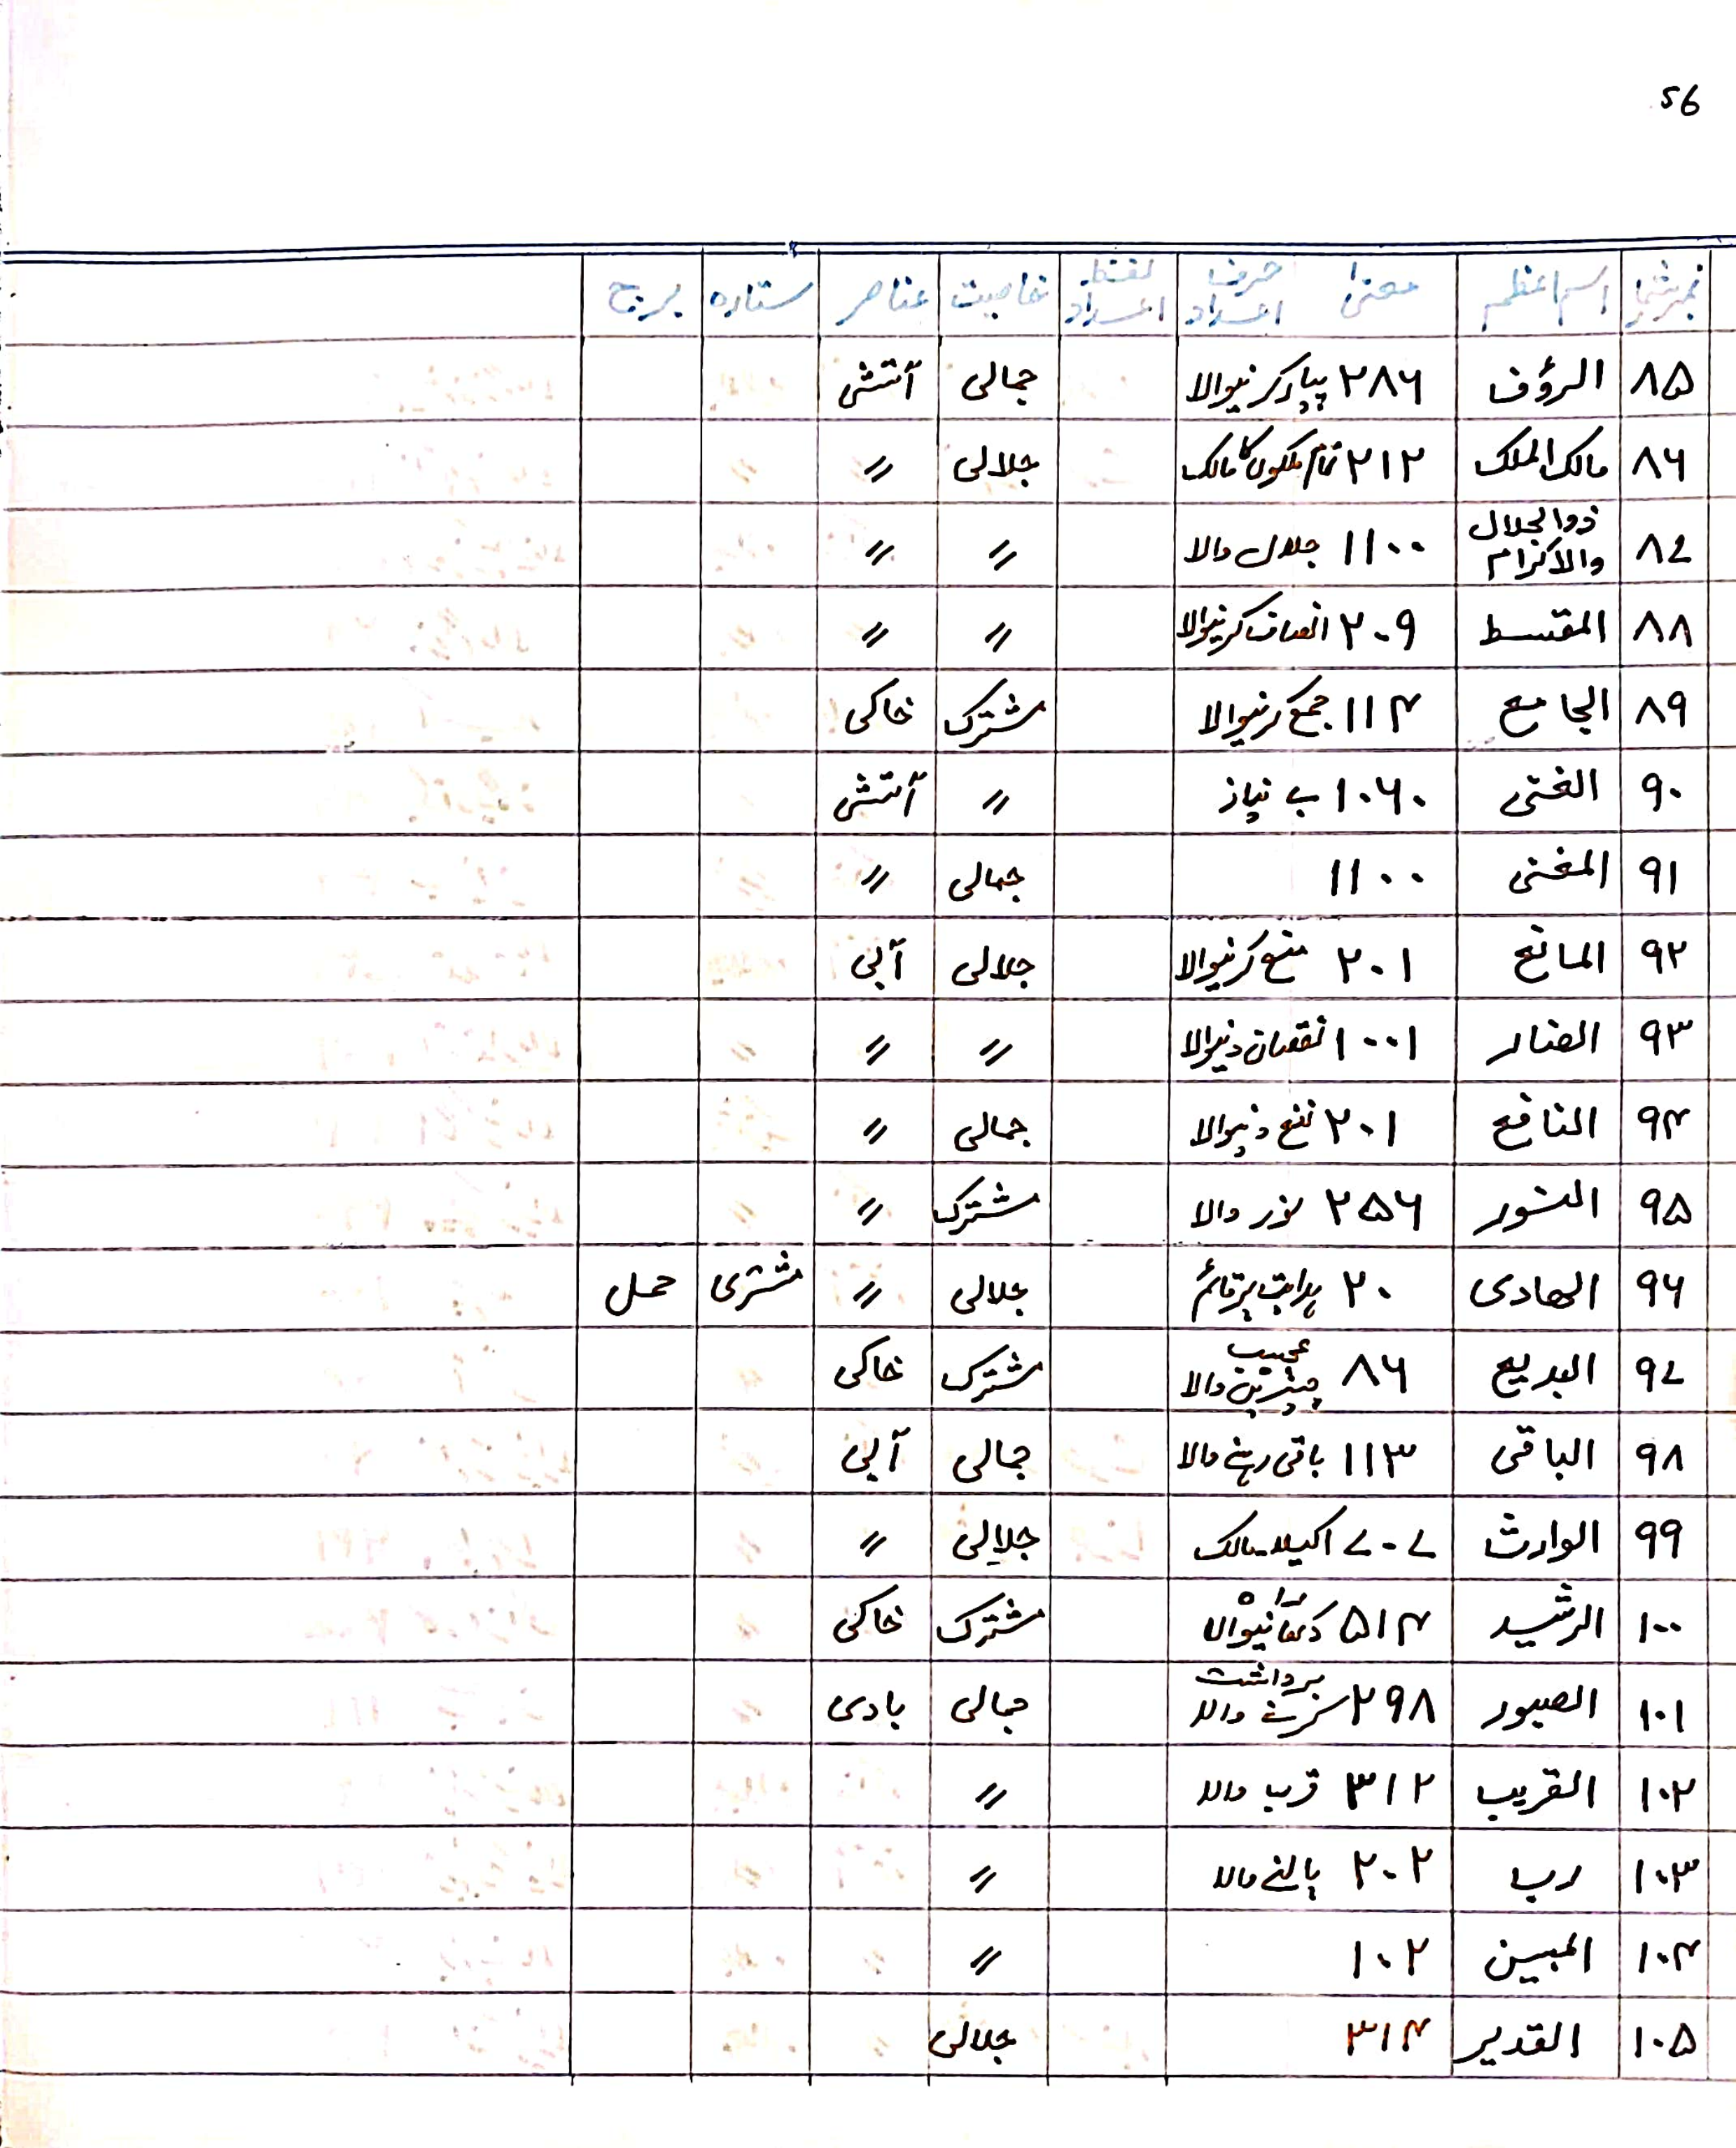 56
نمبرشمار اسم اعظم معنی حرف اعداد نقطہ اعداد خاصیت عناصر ستارہ برج
۸۵ الرؤف ۲۸۶ پیار کرنیوالا جمالی آتشی
۸۶ مالک الملک ۲۱۲ تمام ملکوں کا مالک جلالی 〃
۸۷ ذوالجلال والاکرام ۱۱۰۰ جلال والا 〃 〃
۸۸ المقسط ۲۰۹ انصاف کرنیوالا 〃 〃
۸۹ الجامع ۱۱۴ جمع کرنیوالا مشترک خاکی
۹۰ الغنی ۱۰۶۰ بے نیاز 〃 آتشی
۹۱ المغنی ۱۱۰۰ جمالی 〃
۹۲ المانع ۲۰۱ منع کرنیوالا جلالی آبی
۹۳ الضار ۱۰۰۱ نقصان دنیوالا 〃 〃
۹۴ النافع ۲۰۱ نفع دنیوالا جمالی 〃
۹۵ النور ۲۵۶ نور والا مشترک 〃
۹۶ الھادی ۲۰ ہدایت پر قائم جلالی 〃 مشتری حمل
۹۷ البدیع ۸۶ عجیب چیزیں والا مشترک خاکی
۹۸ الباقی ۱۱۳ باقی رہنے والا جمالی آبی
۹۹ الوارث ۷۰۷ اکیلا مالک جلالی 〃
۱۰۰ الرشید ۵۱۴ راہ دکھانیوالا مشترک خاکی
۱۰۱ الصبور ۲۹۸ برداشت کرنے والا جمالی بادی
۱۰۲ القریب ۳۱۲ قرب والا 〃
۱۰۳ رب ۲۰۲ پالنے والا 〃
۱۰۴ المبین ۱۰۲ 〃
۱۰۵ القدیر ۳۱۴ جلالی